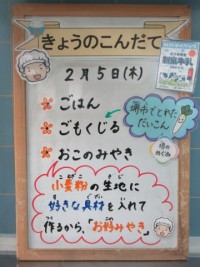 きょうのこんだて
2月5日(木)
ごはん
ごもくじる
堺市でとれた
だいこん
おこのみやき
堺の
めぐみ
小麦粉の生地に
こむぎこ きじ
好きな具材を入れて
作るから、「お好みやき」